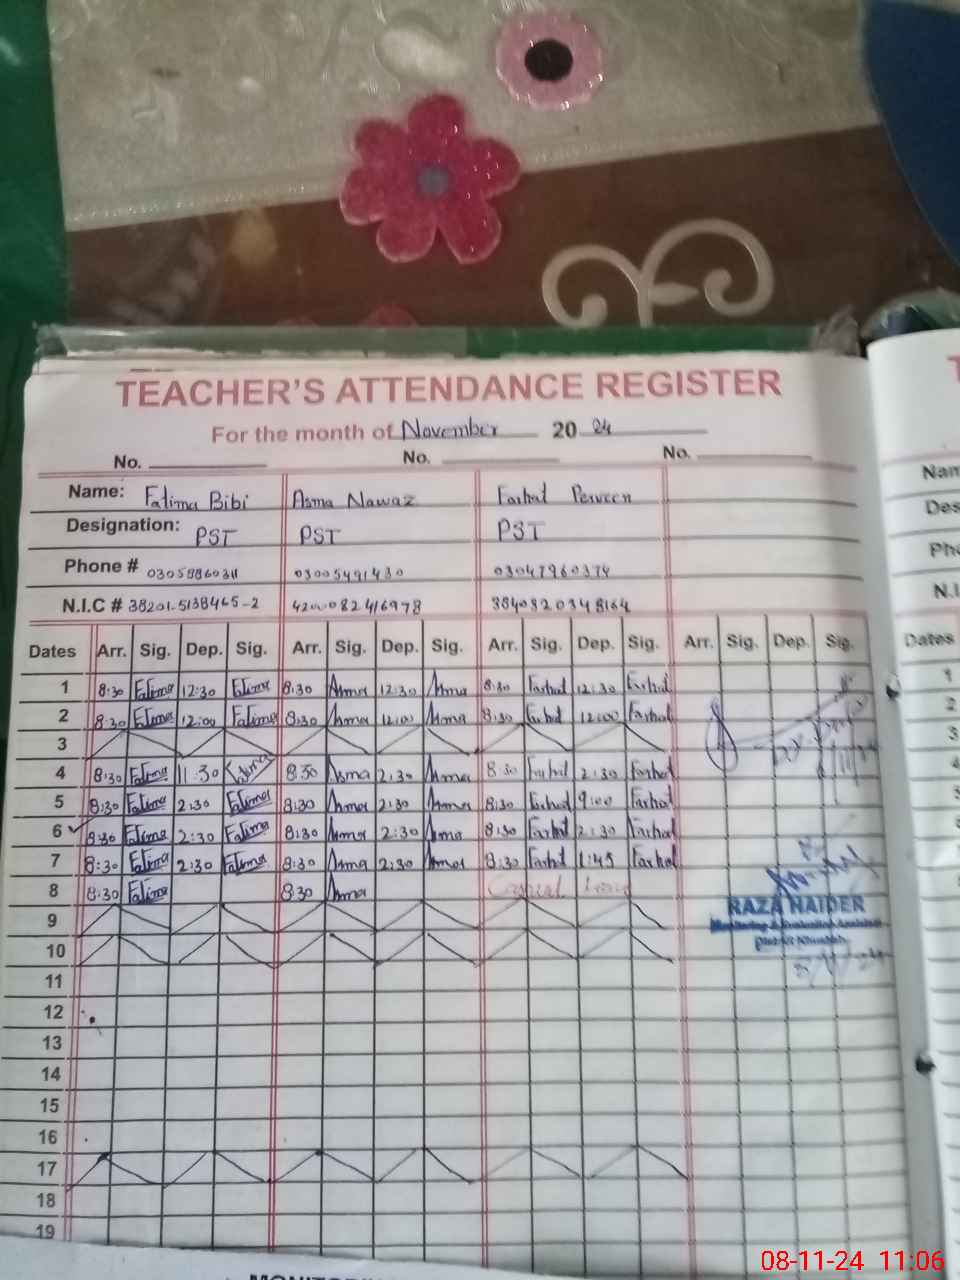 TEACHER'S ATTENDANCE REGISTER
For the month of November 20 24
No. No. No.
Name: Fatima Bibi Asma Nawaz Farhat Perveen
Designation: PST PST PST
Phone # 03005491430 03047960374
N.I.C # 38201-5138465-2 3840320348164
Dates Arr. Sig. Dep. Sig. Arr. Sig. Dep. Sig. Arr. Sig. Dep. Sig. Arr. Sig. Dep. Sig. Dates
1 8:30 Fatima 12:30 Fatima 8:30 Asma 12:30 Asma 8:30 Farhat 12:30 Farhat 1
2 8:30 Fatima 12:00 Fatima 8:30 Asma 12:00 Asma 8:30 Farhat 12:00 Farhat 2
3 3
4 8:30 Fatima 11:30 Fatima 8:30 Asma 2:30 Asma 8:30 Farhat 2:30 Farhat 4
5 8:30 Fatima 2:30 Fatima 8:30 Asma 2:30 Asma 8:30 Farhat 9:00 Farhat
6 8:30 Fatima 2:30 Fatima 8:30 Asma 2:30 Asma 8:30 Farhat 2:30 Farhat
7 8:30 Fatima 2:30 Fatima 8:30 Asma 2:30 Asma 8:30 Farhat 1:45 Farhat
8 8:30 Fatima 8:30 Asma Casual Leave
RAZA HAIDER
Monitoring & Evaluation Assistant
District Khushab
8/11/24
9
10
11
12
13
14
15
16
17
18
19
08-11-24 11:06